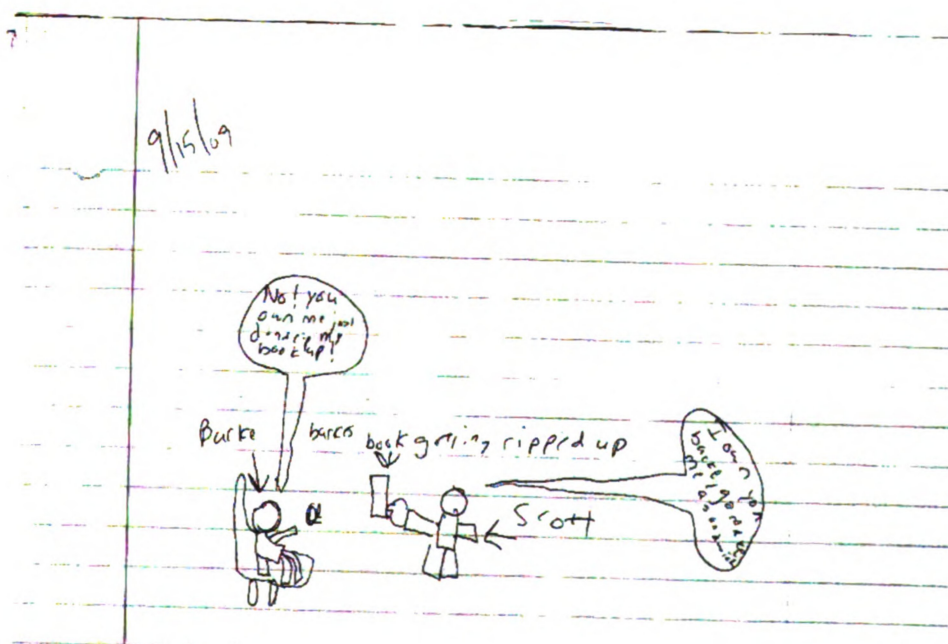 9/15/09
No! you
own me just
dont rip my
book up!
Burke
burcks book getting ripped up
Scott
I own you